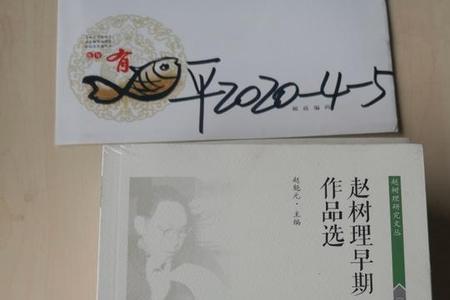 有
平2020-4-5
邮政编码
赵树理早期
作品选
赵魁元·主编
赵树理研究文丛